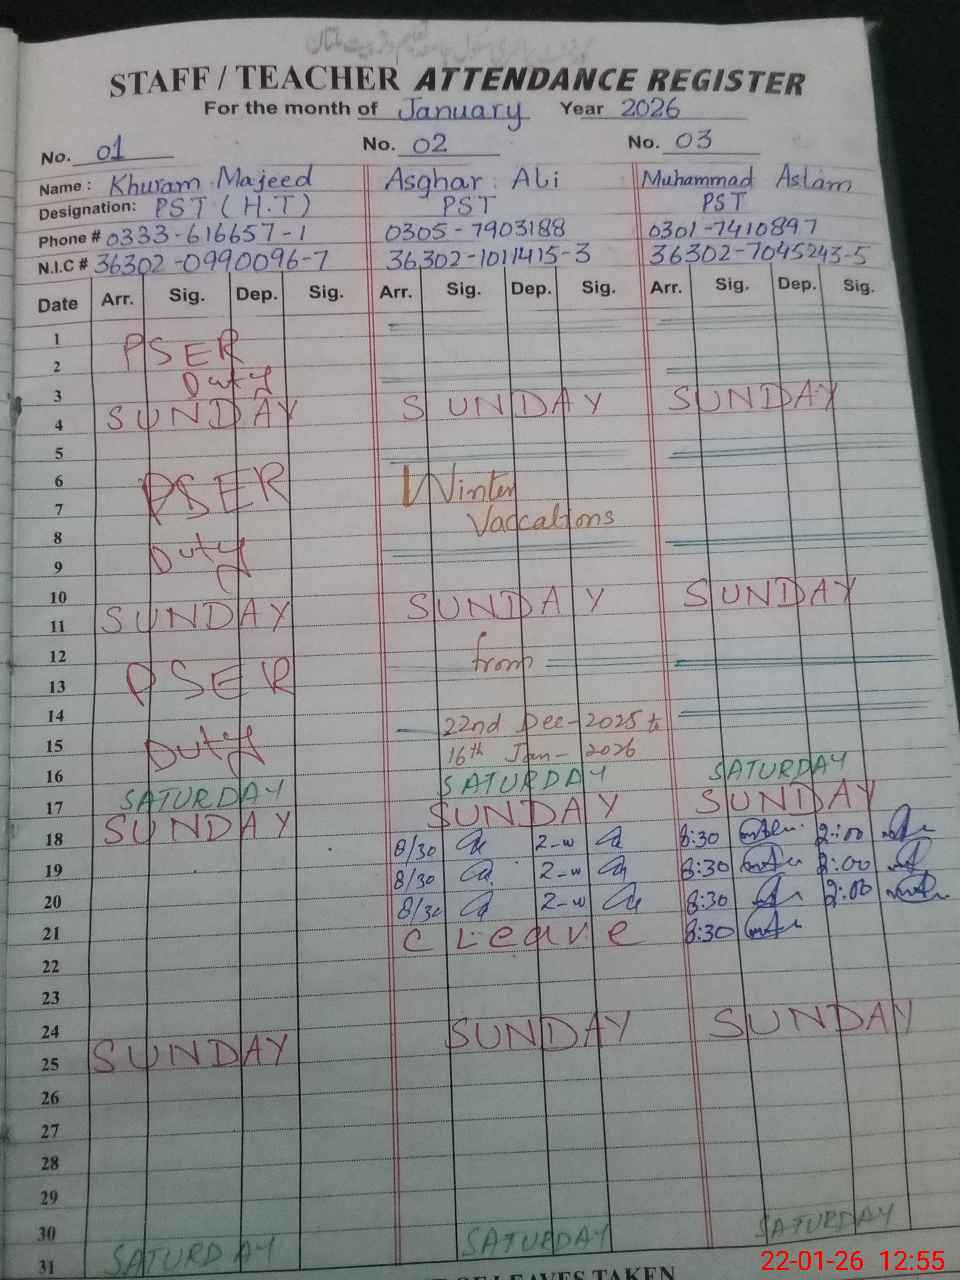 STAFF / TEACHER ATTENDANCE REGISTER
For the month of January Year 2026
No. 01 No. 02 No. 03
Name : Khuram Majeed Asghar Ali Muhammad Aslam
Designation: PST (H.T) PST PST
Phone # 0333-616657-1 0305-7903188 0301-7410897
N.I.C # 36302-0990096-7 36302-1011415-3 36302-7045243-5
Date Arr. Sig. Dep. Sig. Arr. Sig. Dep. Sig. Arr. Sig. Dep. Sig.
1
2 PSER
3 Duty
4 SUNDAY SUNDAY SUNDAY
5
6 PSER Winter
7 Vaccations
8
9 Duty
10
11 SUNDAY SUNDAY SUNDAY
12
13 PSER from
14
15 Duty 22nd Dec-2025 to
16 16th Jan-2026
17 SATURDAY SATURDAY SATURDAY
18 SUNDAY SUNDAY SUNDAY
19 8/30 8:30 2:00
20 8/30 8:30 2:00
21 8/30 8:30 2:00
22 C Leave 8:30
23
24
25 SUNDAY SUNDAY SUNDAY
26
27
28
29
30
31 SATURDAY SATURDAY SATURDAY
OF LEAVES TAKEN
22-01-26 12:55